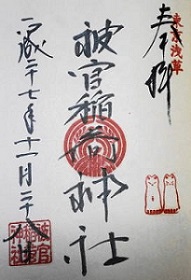 東京浅草
奉拝
被官稲荷神社
平成二十七年十一月二十八日